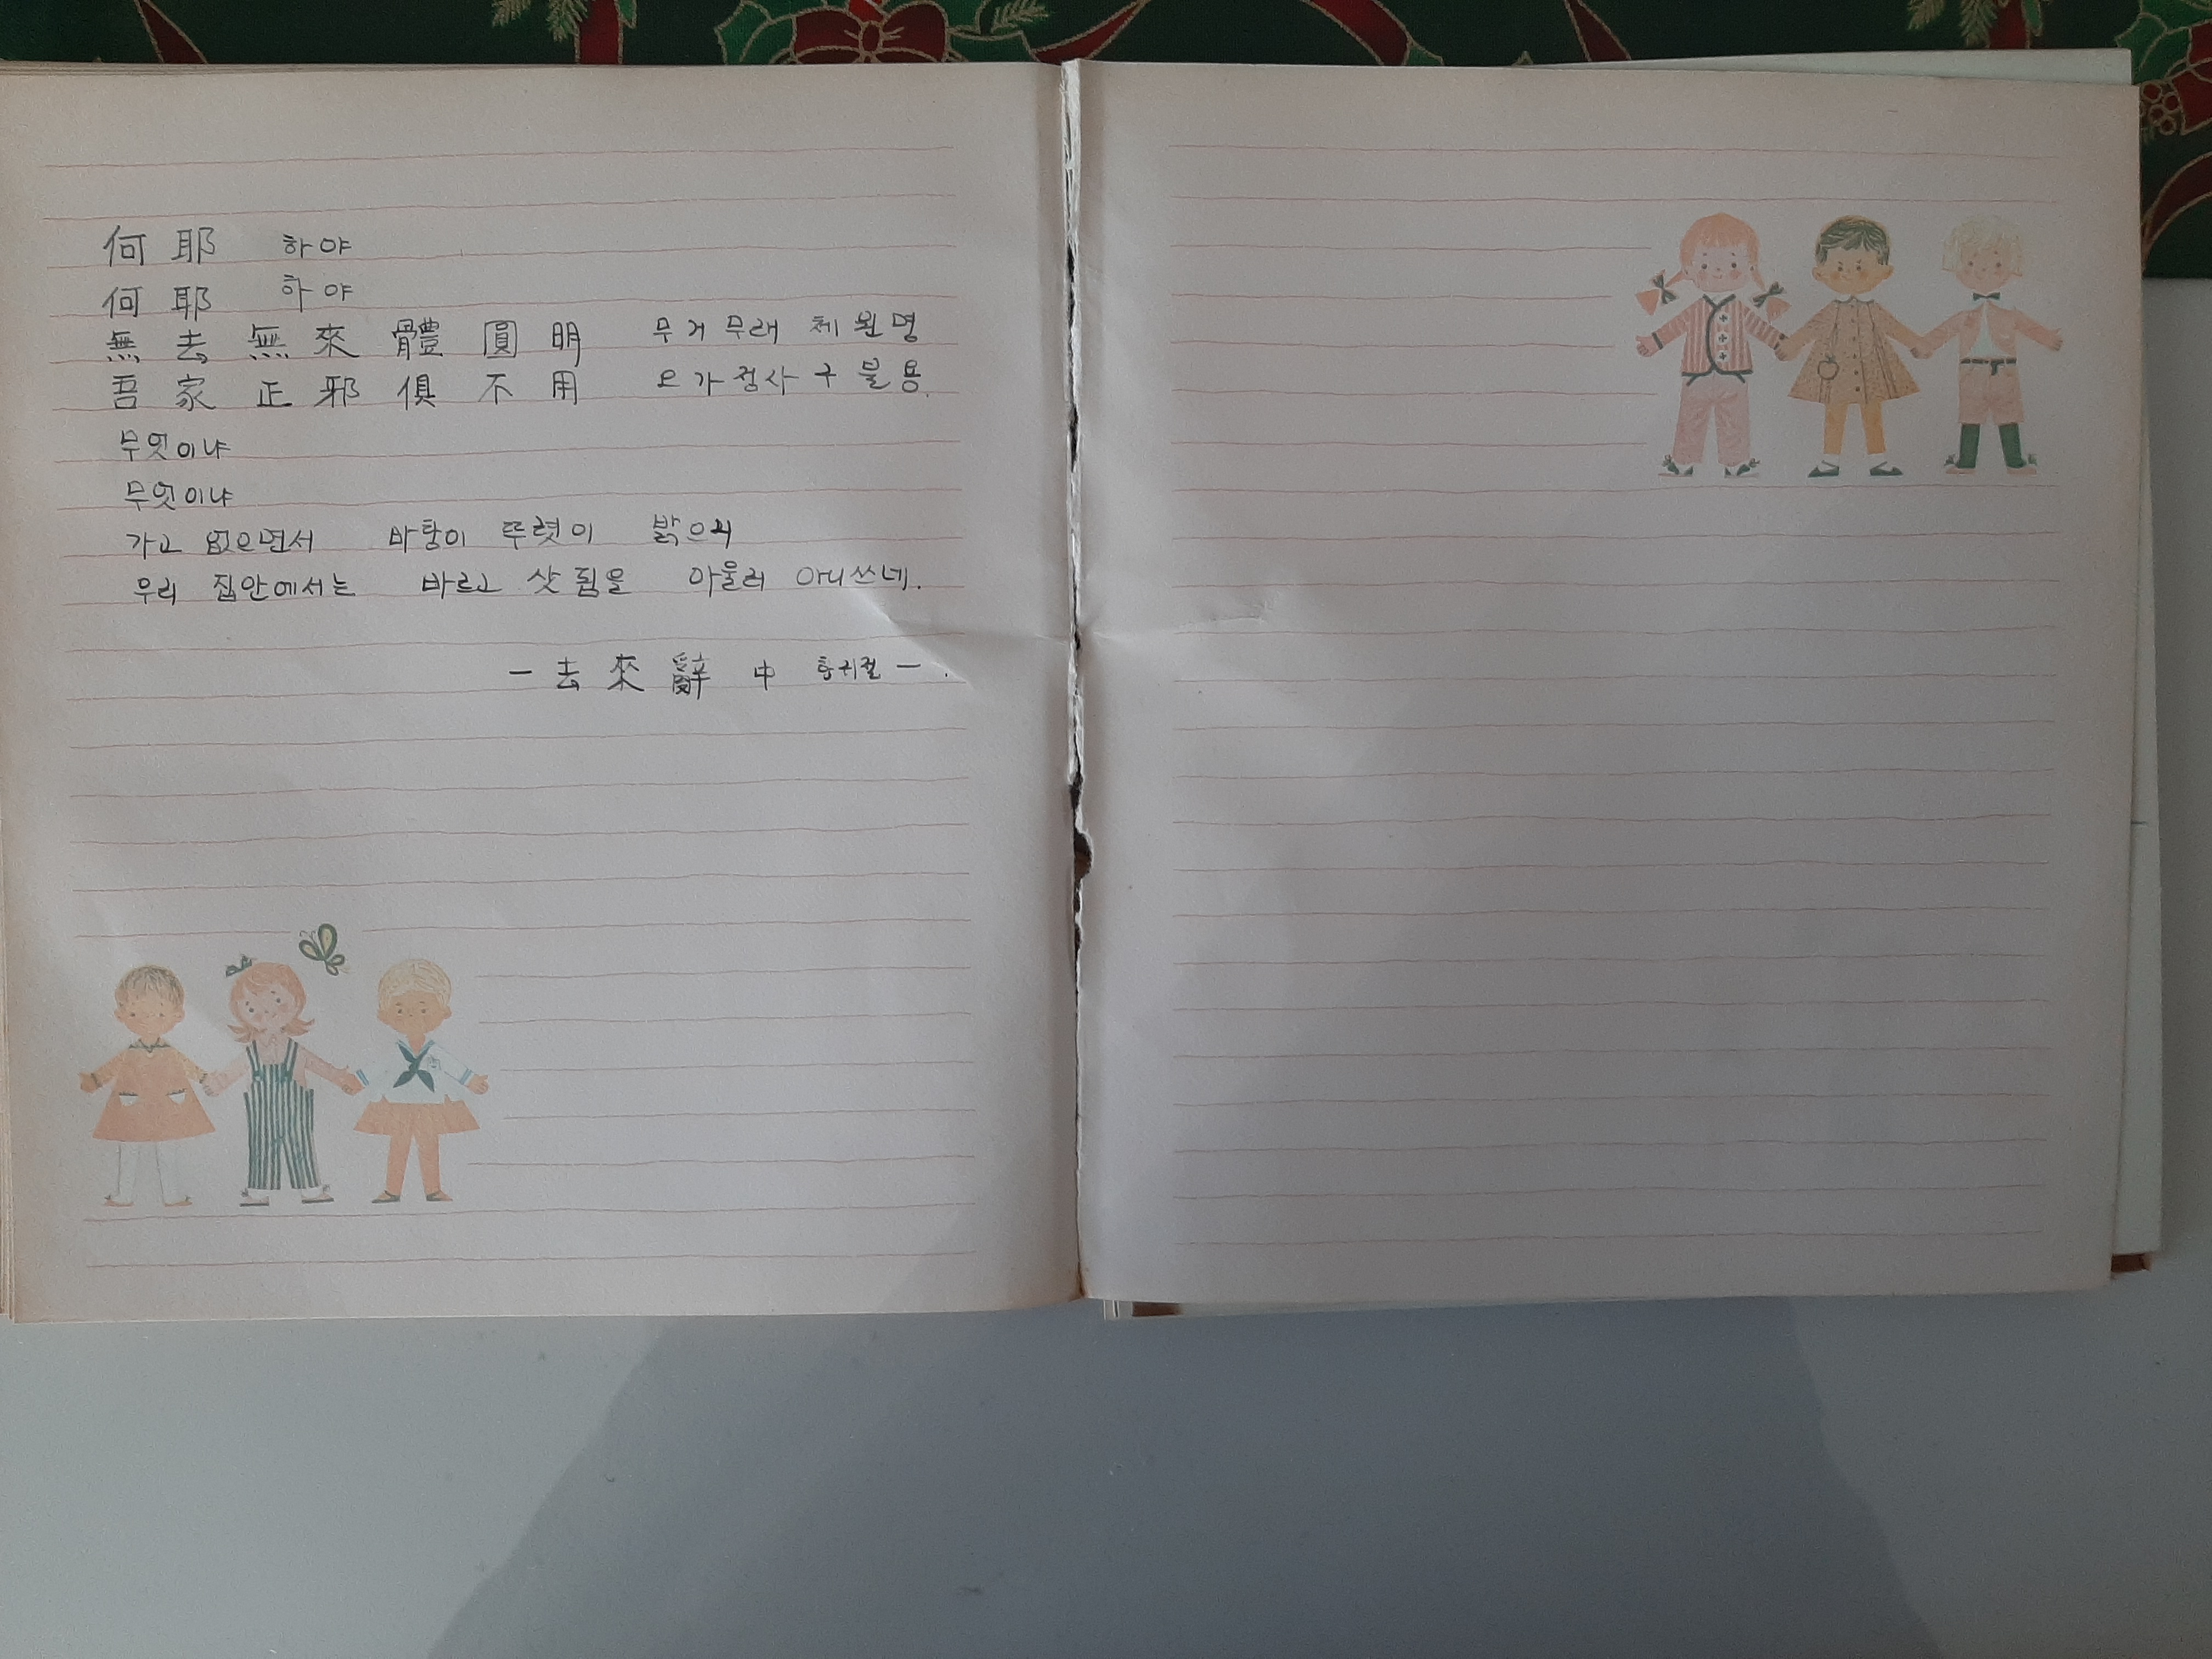 何耶 하야
何耶 하야
無去無來體圓明 무거무래 체원명
吾家正邪俱不用 오가정사구불용.
무엇이냐
무엇이냐
가고 없으면서 바탕이 뚜렷이 밝으되
우리 집안에서는 바르고 삿됨을 아울러 아니쓰네.
一 去來辭 中 一